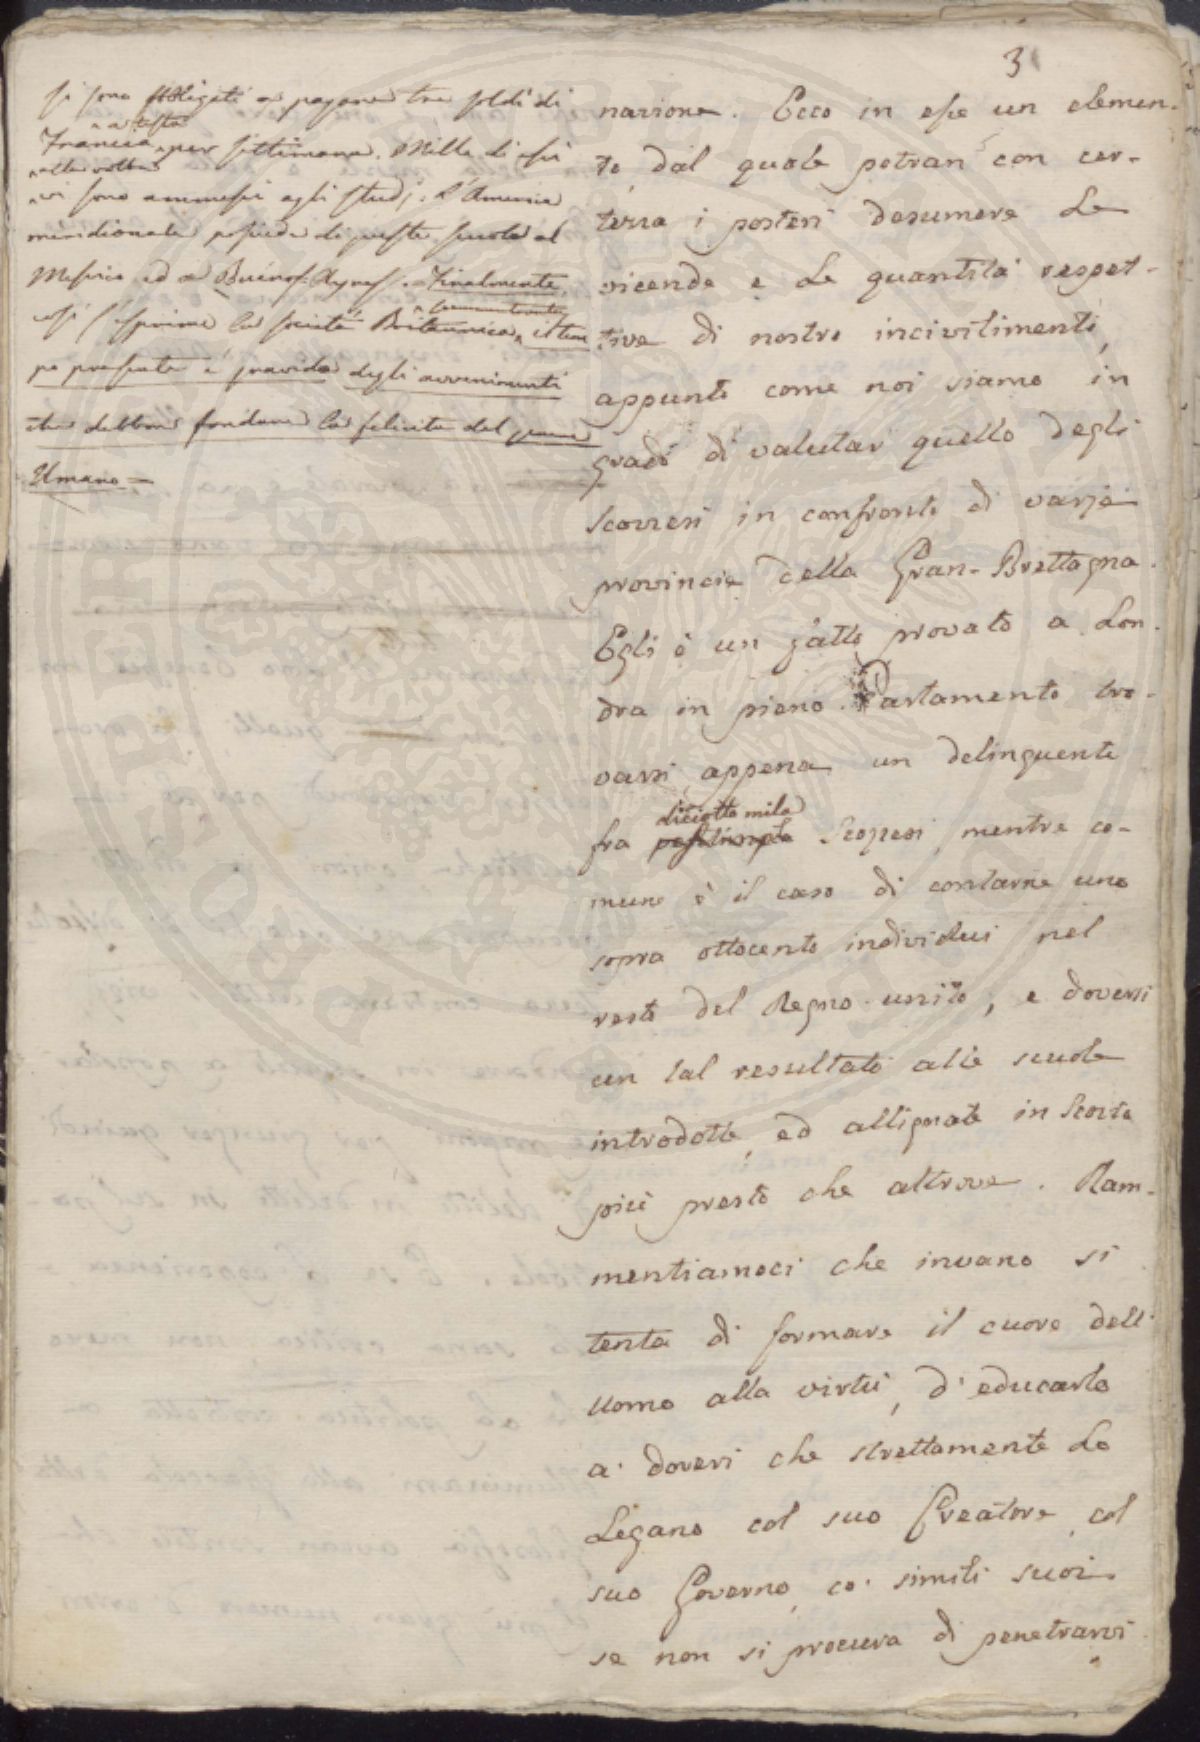 3
si sono obbligati a pagare tre soldi di
a testa
Francia per settimana. Mille di essi
altre volte
vi sono ammessi agli studj. L'America
meridionale possiede di queste scuole al
Messico ed a Buenos-Ayres. = Finalmente,
così s'esprime la società Britannica, il tem
po presente è gravido degli avvenimenti
che debbon fondare la felicità del genere
Umano =
nazione. Ecco in esse un elemen-
to dal quale potran con cer-
tezza i posteri desumere le
vicende e le quantità respet-
tive di nostro incivilimento,
appunto come noi siamo in
grado di valutar quello degli
scozzesi in confronto di varie
provincie della Gran-Brettagna.
Egli è un fatto provato a Lon-
dra in pieno Parlamento tro-
varsi appena un delinquente
diciotto mila
fra Scozzesi mentre co-
mune è il caso di contarne uno
sopra ottocento individui nel
resto del Regno unito, e doversi
un tal resultato alle scuole
introdotte, ed allignate in Scozia
più presto che altrove. Ram-
mentiamoci che invano si
tenta di formare il cuore dell'
uomo alla virtù, d'educarlo
a' doveri che strettamente lo
legano col suo Creatore, col
suo Governo, co' simili suoi
se non si procura di penetrarvi